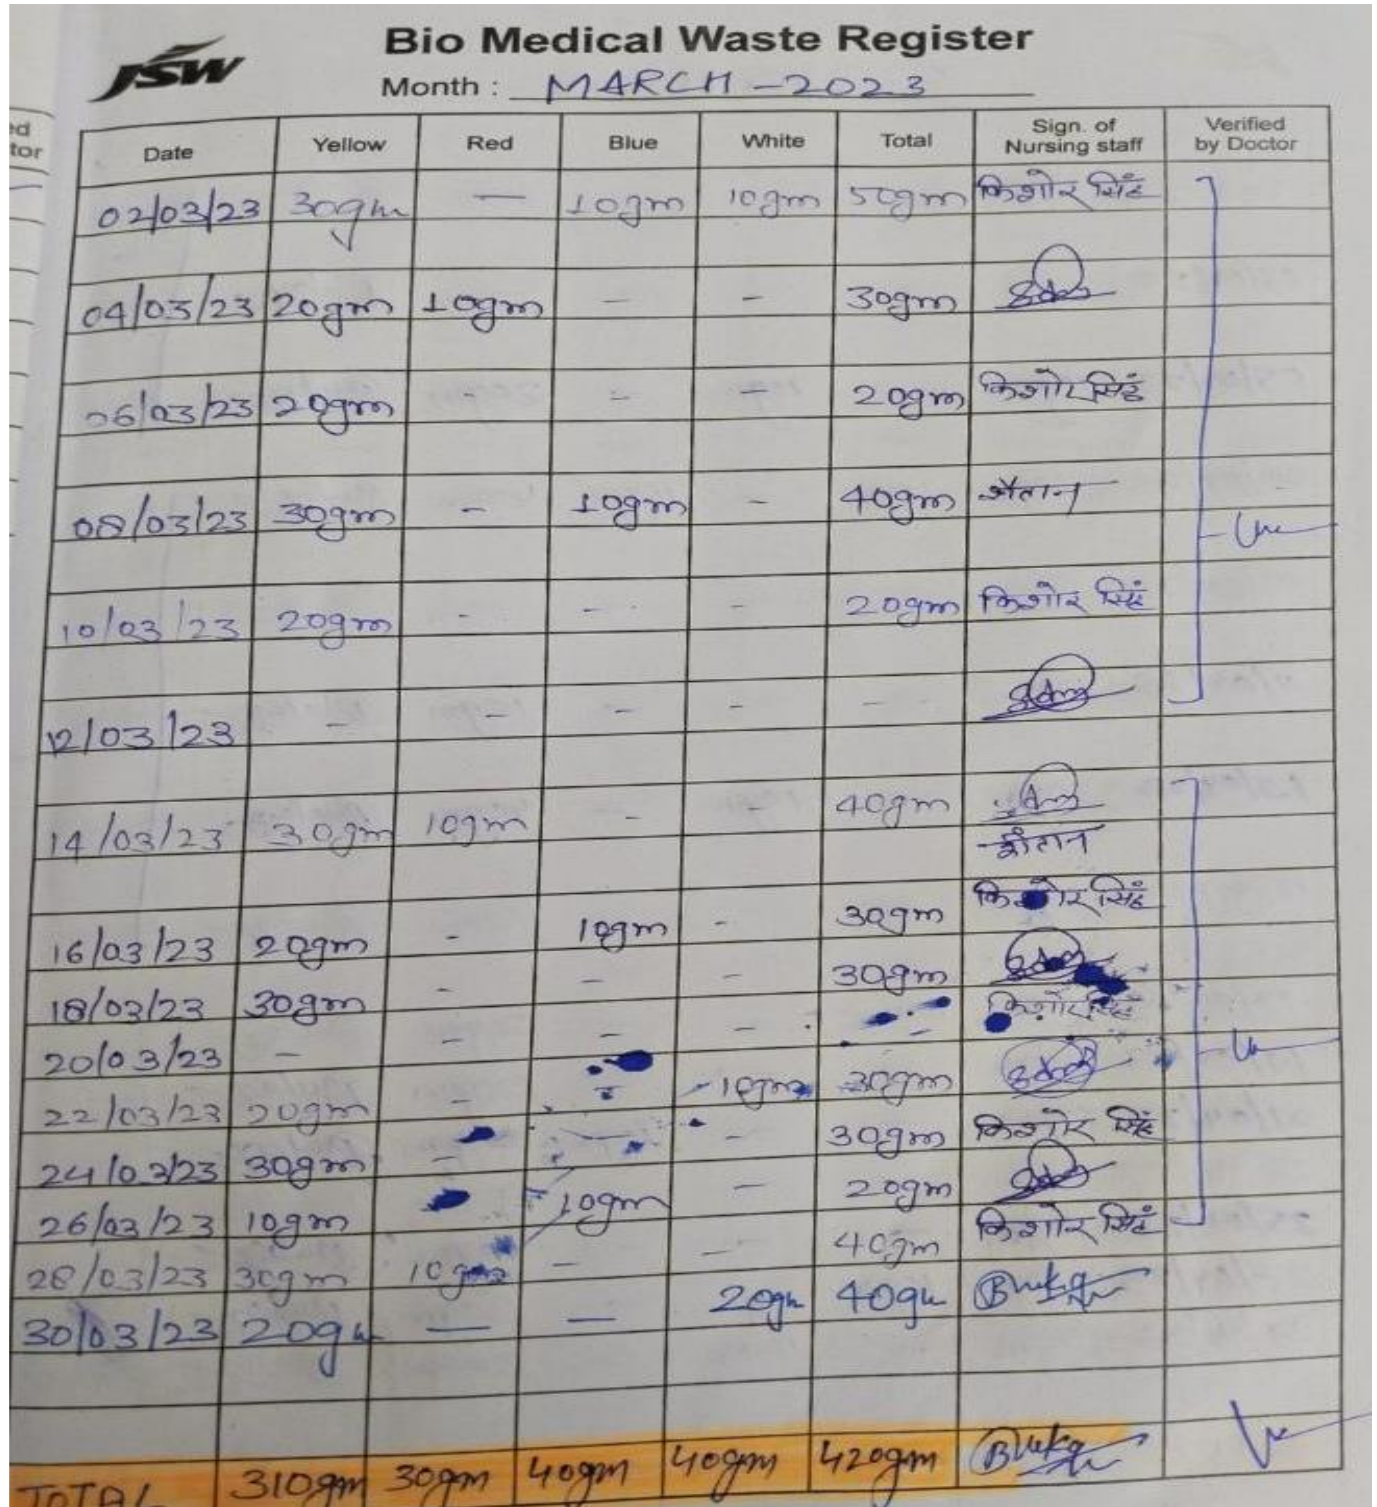 JSW
Bio Medical Waste Register
Month : MARCH - 2023
ed
tor
Date Yellow Red Blue White Total Sign. of Nursing staff Verified by Doctor
02/03/23 30gm — 10gm 10gm 50gm किशोर सिंह
04/03/23 20gm 10gm - - 30gm
06/03/23 20gm - - - 20gm किशोर सिंह
08/03/23 30gm - 10gm - 40gm शैतान
10/03/23 20gm - - - 20gm किशोर सिंह
12/03/23 - - - - -
14/03/23 30gm 10gm - - 40gm
शैतान
16/03/23 20gm - 10gm - 30gm किशोर सिंह
18/03/23 30gm - - - 30gm
20/03/23 - - - - - किशोर सिंह
22/03/23 20gm - - 10gm 30gm
24/03/23 30gm - - - 30gm किशोर सिंह
26/03/23 10gm 10gm - 20gm
28/03/23 30gm 10gm - - 40gm किशोर सिंह
30/03/23 20gm — — 20gm 40gm
TOTAL 310gm 30gm 40gm 40gm 420gm